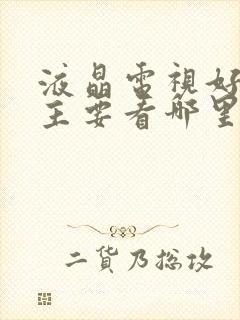 液晶電視好
主要看哪里
二貨乃總攻